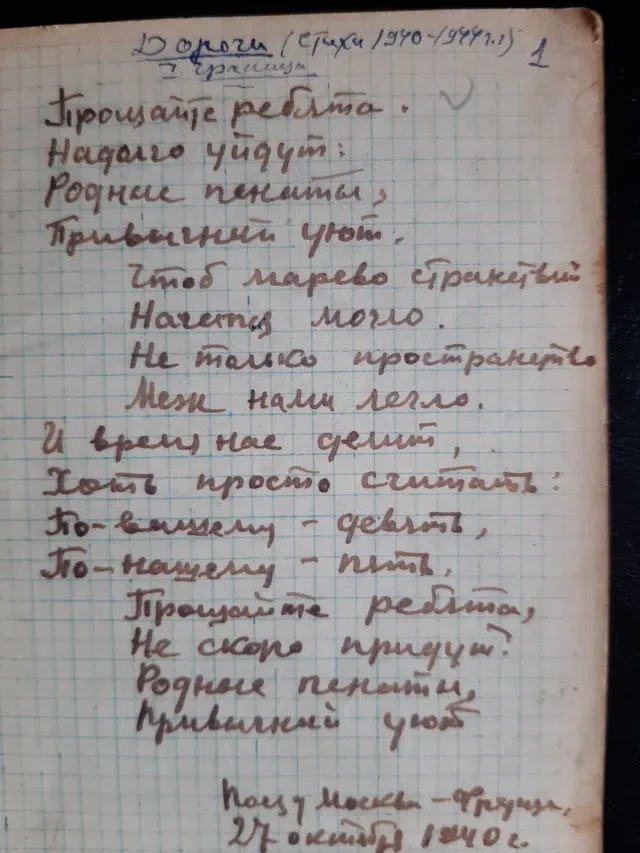 Дороги (стихи 1940-1944 г.г)
1 граница
1
Прощайте ребята.
Надолго уйдут:
Родные пенаты,
Привычный уют.
Чтоб марево странствий
Начаться могло.
Не только пространство
Меж нами легло.
И время нас делит,
Хоть просто считать:
По-вашему - девять,
По-нашему - пять.
Прощайте ребята,
Не скоро придут:
Родные пенаты,
Привычный уют
Поезд Москва - Фрунзе,
27 октября 1940 г.